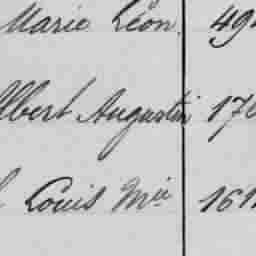 Marie Léon. 494
Albert Augustin 170
Louis Mie 161